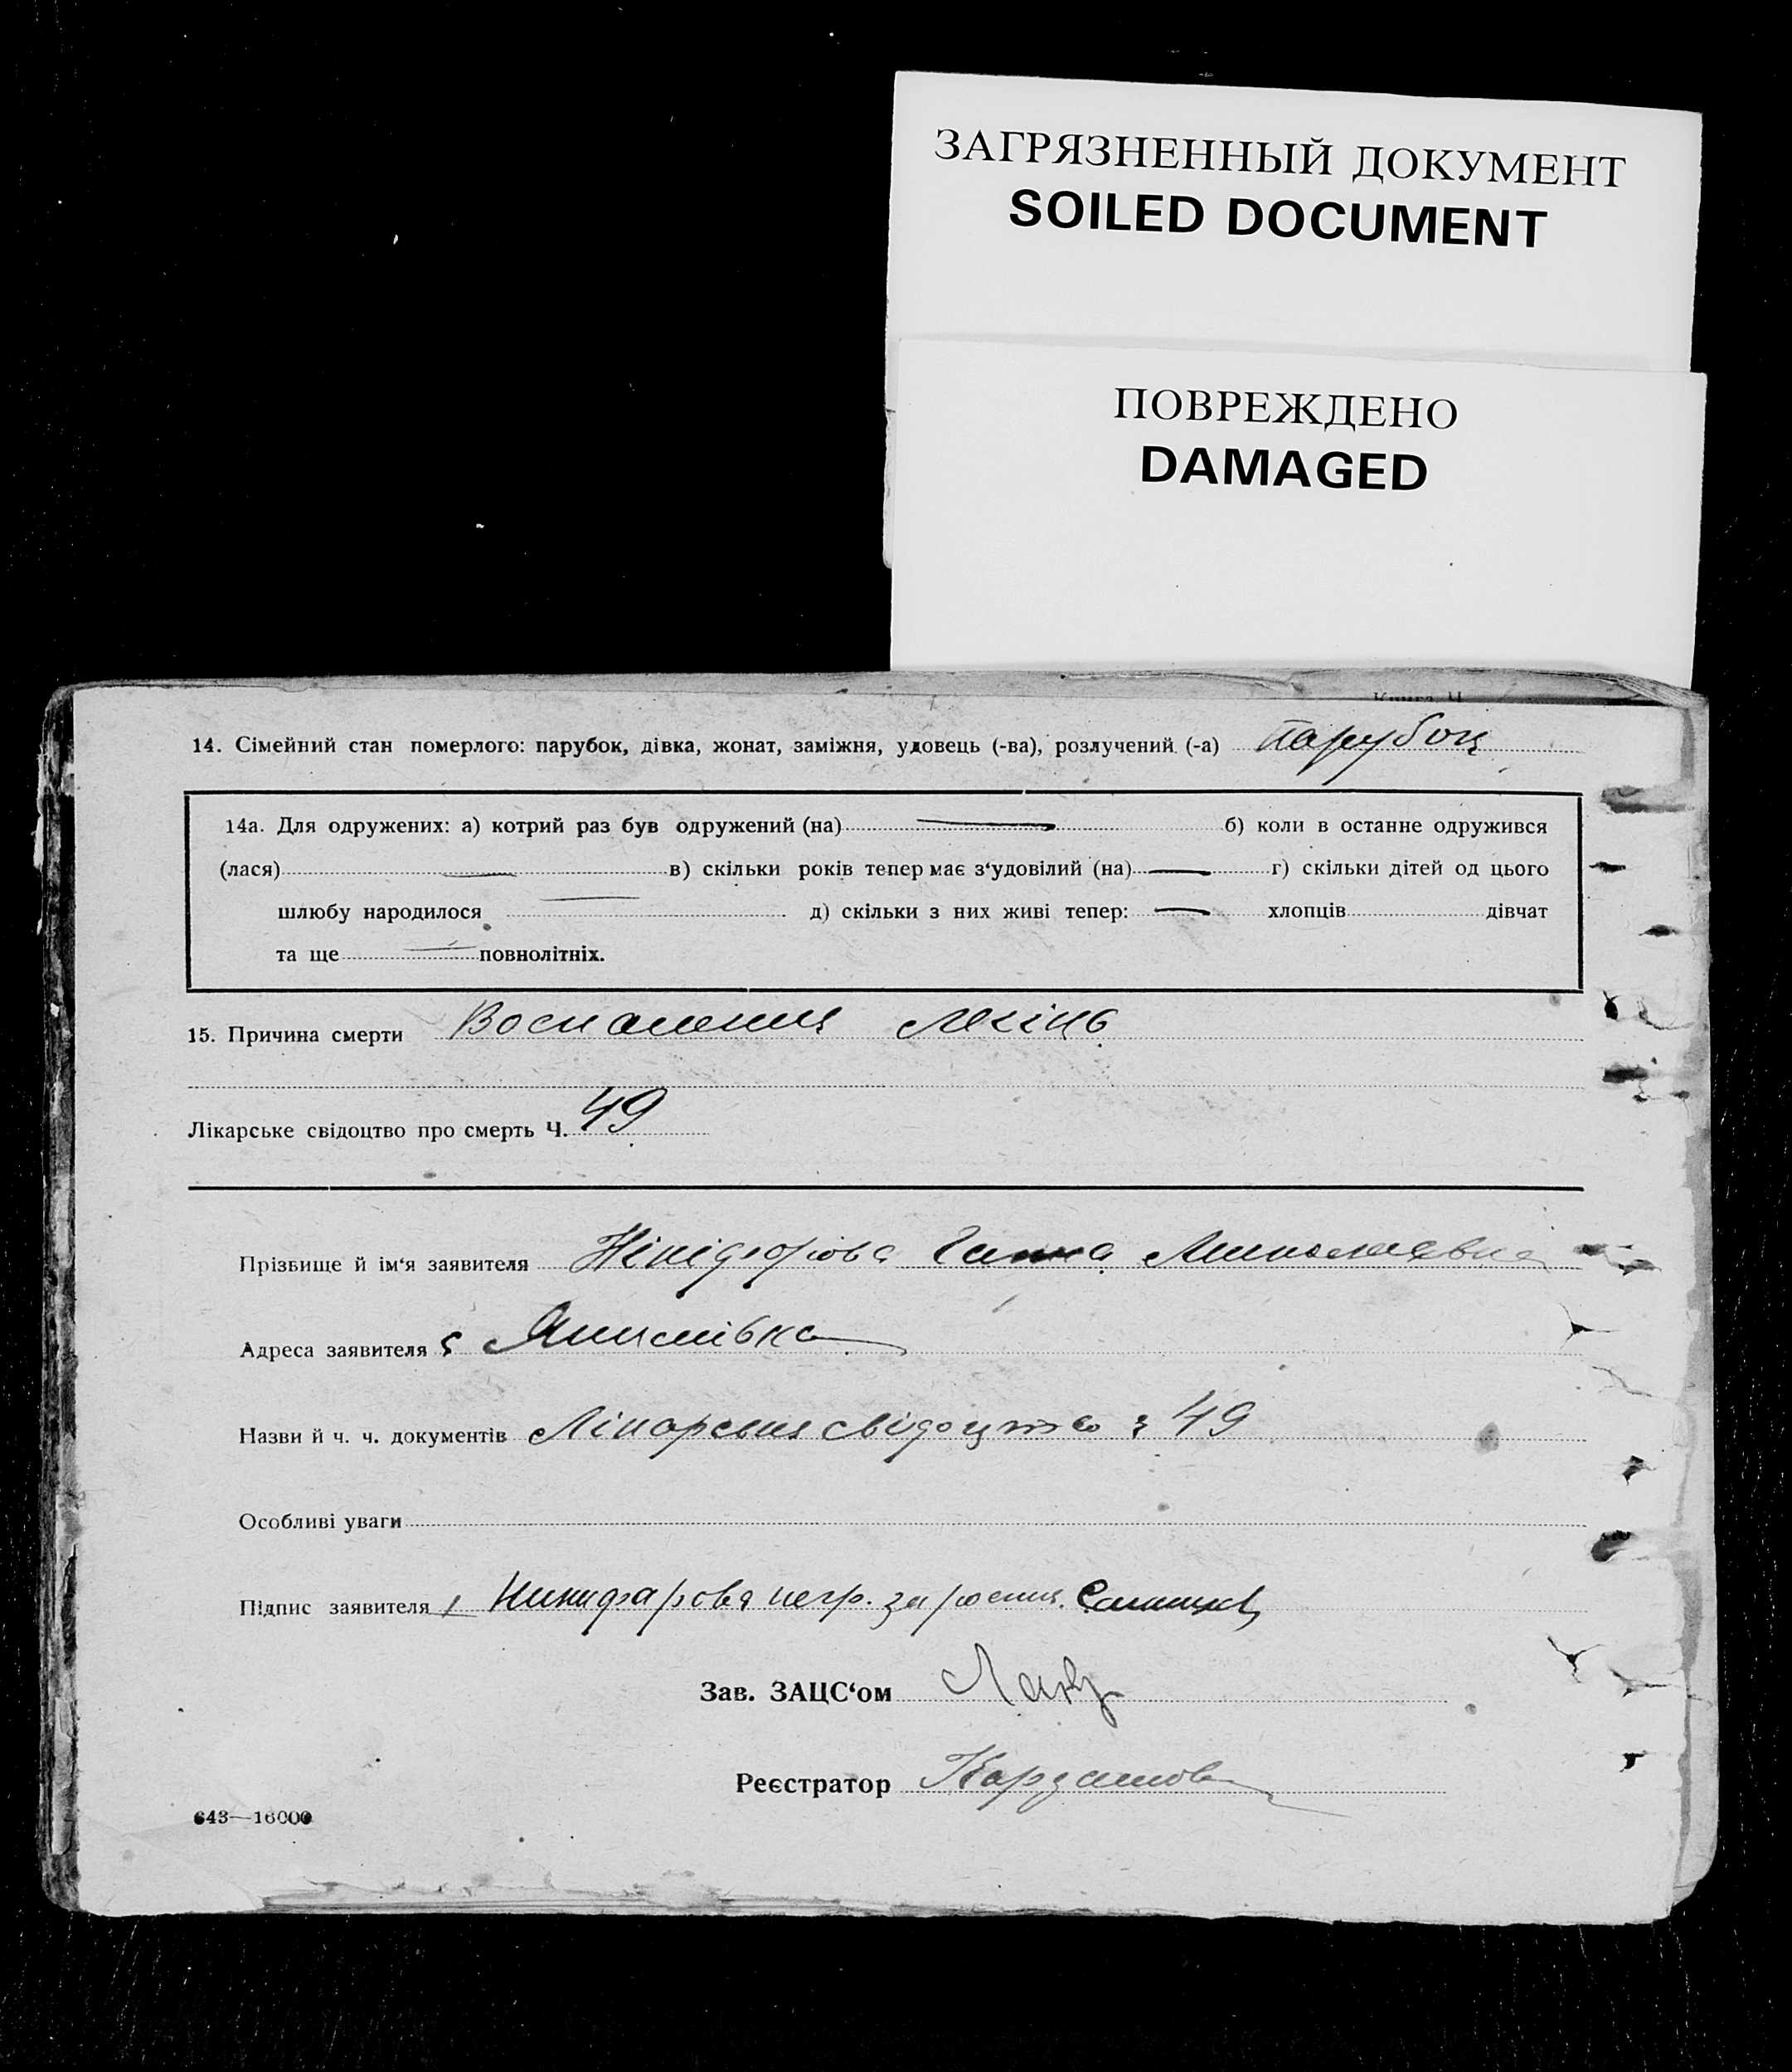 ЗАГРЯЗНЕННЫЙ ДОКУМЕНТ
SOILED DOCUMENT
ПОВРЕЖДЕНО
DAMAGED
Книга Ч.
14. Сімейний стан померлого: парубок, дівка, жонат, заміжня, удовець (-ва), розлучений (-а) парубок
14а. Для одружених: а) котрий раз був одружений (на) — б) коли в останне одружився
(лася) — в) скільки років тепер має з‘удовілий (на) — г) скільки дітей од цього
шлюбу народилося — д) скільки з них живі тепер: — хлопців дівчат
та ще — повнолітніх.
15. Причина смерти Воспаления легінь
Лікарське свідоцтво про смерть Ч. 49
Прізвище й ім‘я заявителя Нікіфорова Ганна Миколаевна
Адреса заявителя с Якимівка
Назви й ч. ч. документів Лікарське свідоцтво з 49
Особливі уваги
Підпис заявителя Никифарова негр.
Зав. ЗАЦС‘ом
Реєстратор
643—16000